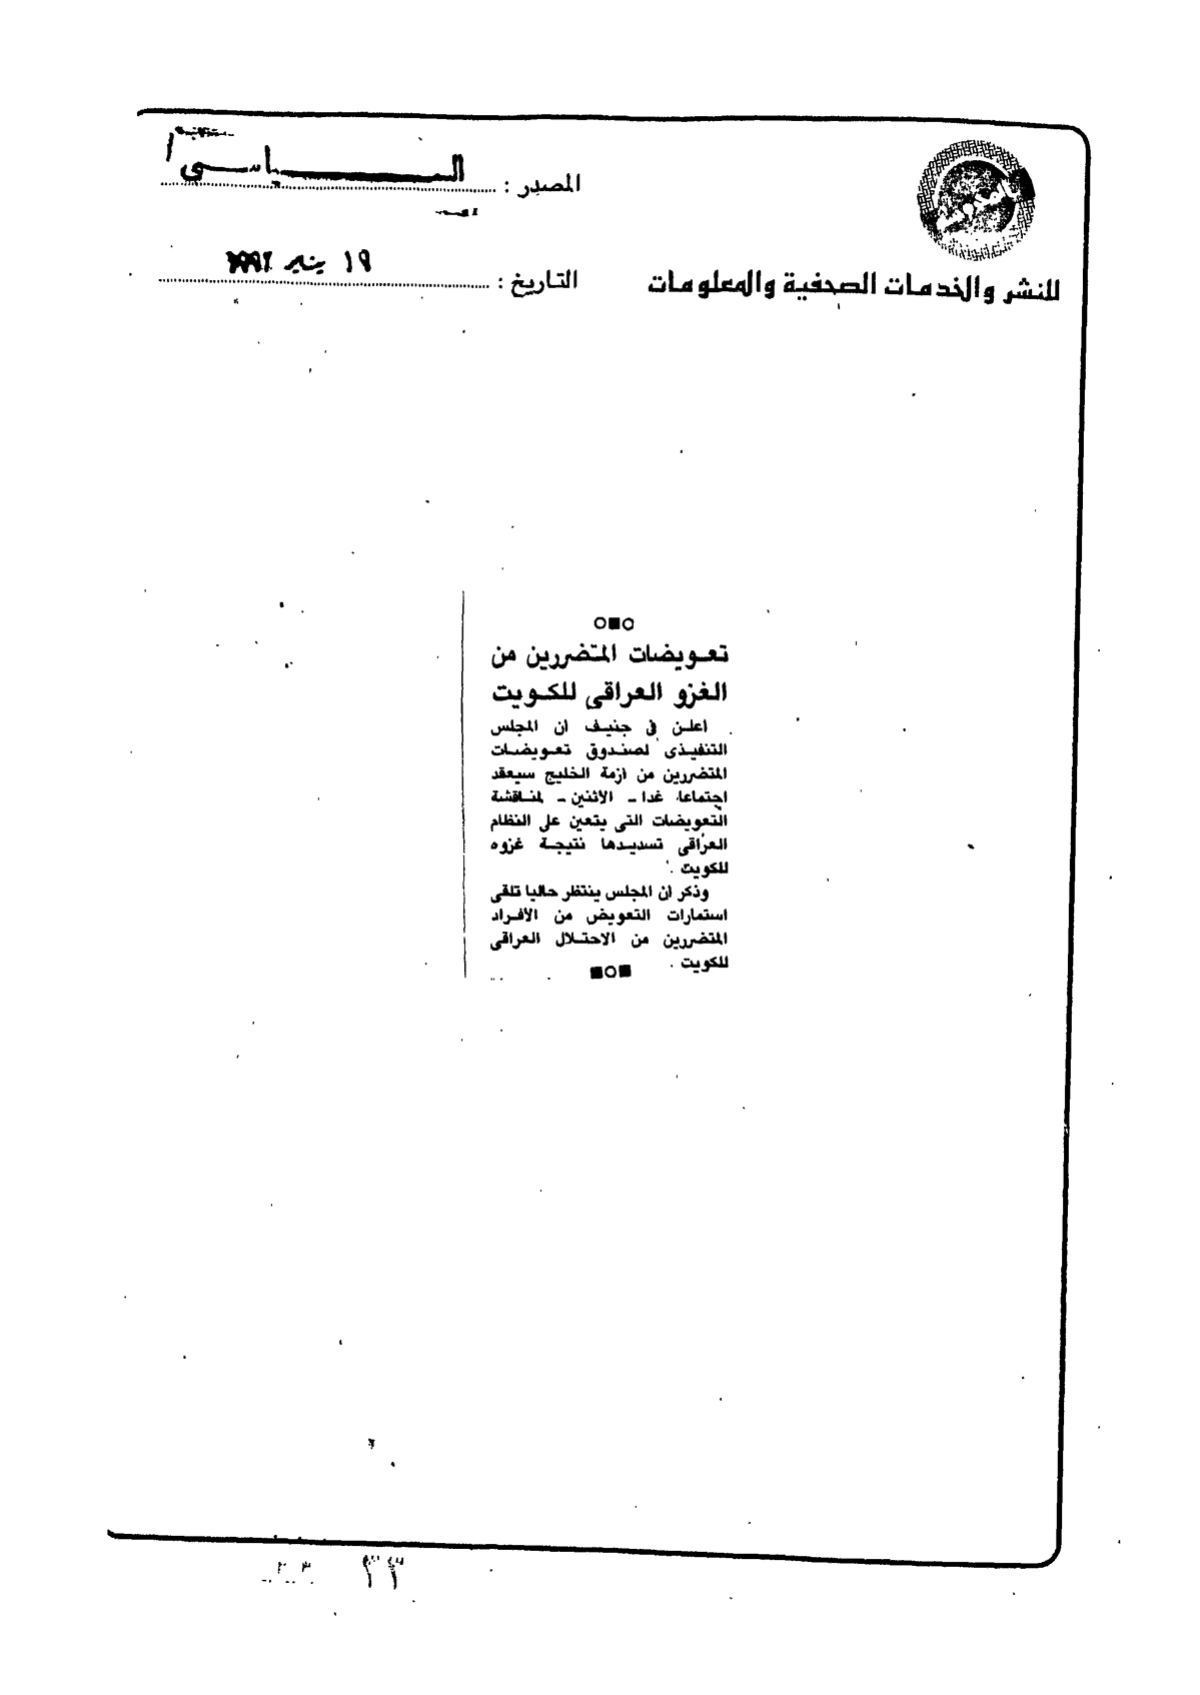 المصدر :
التاريخ : ١٩ يناير ١٩٩٢
للنشر والخدمات الصحفية والمعلومات
تعويضات المتضررين من
الغزو العراقى للكويت
اعلن فى جنيف ان المجلس
التنفيذى لصندوق تعويضات
المتضررين من ازمة الخليج سيعقد
اجتماعا غدا - الأثنين - لمناقشة
التعويضات التى يتعين على النظام
العراقى تسديدها نتيجة غزوه
للكويت .
وذكر ان المجلس ينتظر حاليا تلقى
استمارات التعويض من الأفراد
المتضررين من الاحتلال العراقى
للكويت .